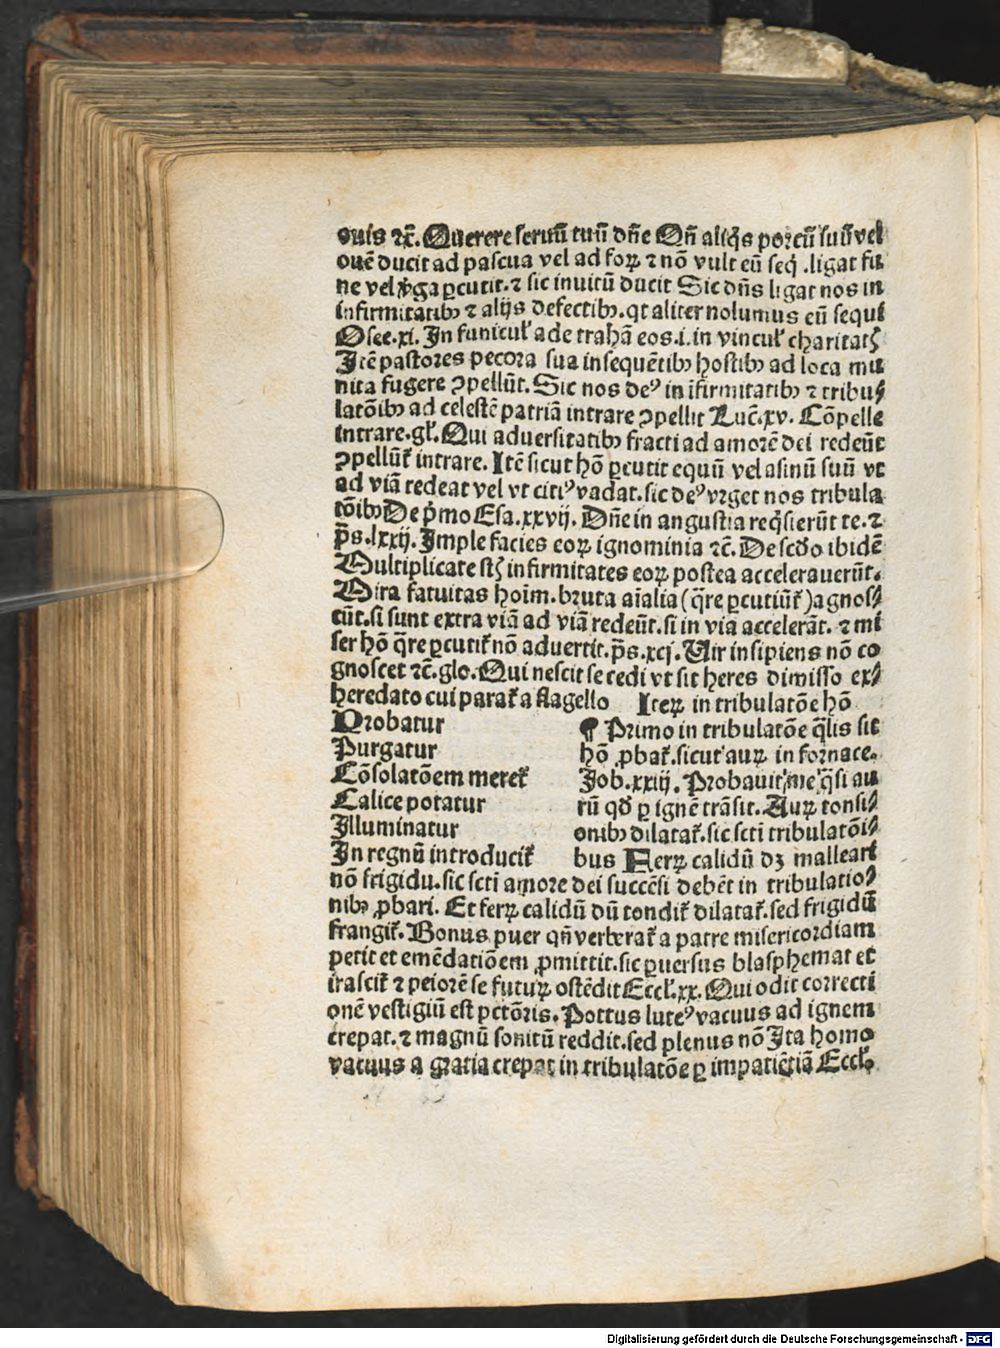 ouis ⁊c̄. Querere seruū tuū dn̄e Qn̄ aliq̄s porcū suū vel
ouē ducit ad pascua vel ad foꝝ ⁊ nō vult eū seq̄ .ligat fu
ne vel v̓ga ꝑcutit.⁊ sic inuitū ducit Sic dn̄s ligat nos in
infirmitatibꝫ ⁊ alijs defectibꝫ.qꝛ aliter nolumus eū sequi
Osee.xi. In funicul̓ ade trahā eos.i.in vincul̓ charitatꝭ
Itē pastores pecora sua insequētibꝫ hostibꝫ ad loca mu
nita fugere ꝯpellūt. Sic nos deꝰ in īfirmitatibꝫ ⁊ tribu⸗
latōibꝫ ad celestē patriā intrare ꝯpellit Luc̄.xv. Cōpelle
intrare.gl̓. Qui aduersitatibꝫ fracti ad amorē dei redeūt
ꝯpellūt̓ intrare. Itē sicut hō ꝑcutit equū vel asinū suū vt
ad viā redeat vel vt citiꝰ vadat.sic deꝰ vrget nos tribula
tōibꝫ De p̓mo Esa.xxvij. Dn̄e in angustia req̄sierūt te.⁊
p̄s.lxxij. Imple facies eoꝝ ignominia ⁊c̄. De scd̓o ibidē
Multiplicate st̄ infirmitates eoꝝ postea accelerauerūt.
Mira fatuitas hoīm.bruta aīalia (q̄re ꝑcutiūt̓) agnos⸗
cūt.si sunt extra viā ad viā redeūt.si in via accelerāt. ⁊ mi
ser hō q̄re ꝑcutit̓ nō aduertit.p̄s.xcj. Uir insipiens nō co
gnoscet ⁊c̄.glo. Qui nescit se cedi vt sit heres dimisso ex⸗
heredato cui parat̓a flagello Iteꝝ in tribulatōe hō
Probatur
Purgatur
Cōsolatōem meret̓
Calice potatur
Illuminatur
In regnū introducit̓
¶ Primo in tribulatōe q̄lis sit
hō ꝓbat̓.sicut auꝝ in fornace.
Job.xxiij. Probauit me q̄si au
rū qd̓ ꝑ ignē trāsit. Auꝝ tonsi⸗
onibꝫ dilatat̓.sic scti tribulatōi⸗
bus Ferꝝ calidū dꝫ malleari
nō frigidū.sic scti amore dei succēsi debēt in tribulatio⸗
nibꝫ ꝓbari. Et ferꝝ calidū dū tondit̓ dilatat̓.sed frigidū
frangit̓. Bonus puer qn̄ verberat̓ a patre misericordiam
petit et emēdatiōem ꝓmittit.sic ꝑuersus blasphemat et
irascit̓ ⁊ peiorē se futuꝝ ostēdit Eccl̓.xx. Qui odit correcti
onē vestigiū est pctōris. Pottus luteꝰ vacuus ad ignem
crepat.⁊ magnū sonitū reddit.sed plenus nō Ita homo
vacuus a gratia crepat in tribulatōe ꝑ impatiētiā Eccl̓.
Digitalisierung gefördert durch die Deutsche Forschungsgemeinschaft - DFG